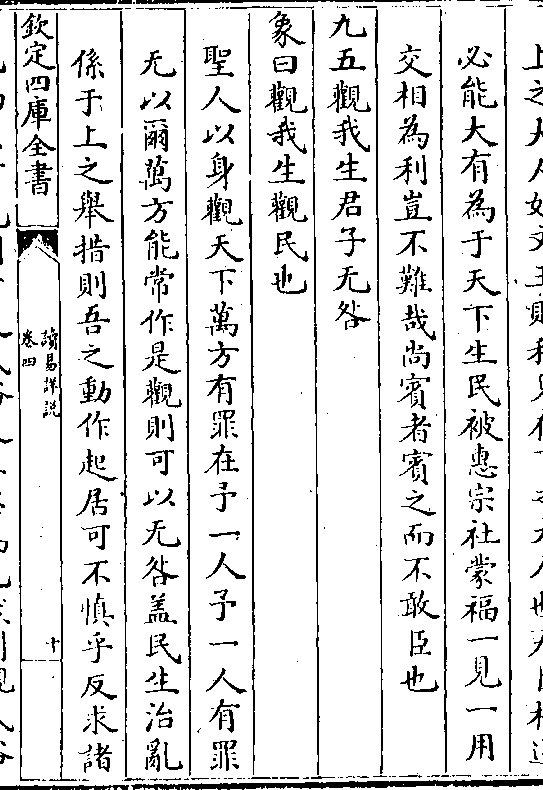 必能大有為于天下生民被惠宗社蒙福一見一用
交相為利豈不難哉尚賓者賓之而不敢臣也
九五觀我生君子无咎
象曰觀我生觀民也
聖人以身觀天下萬方有罪在予一人予一人有罪
无以爾萬方能常作是觀則可以无咎盖民生治亂
係于上之舉措則吾之動作起居可不慎乎反求諸
欽定四庫全書
讀易詳説
卷四
十